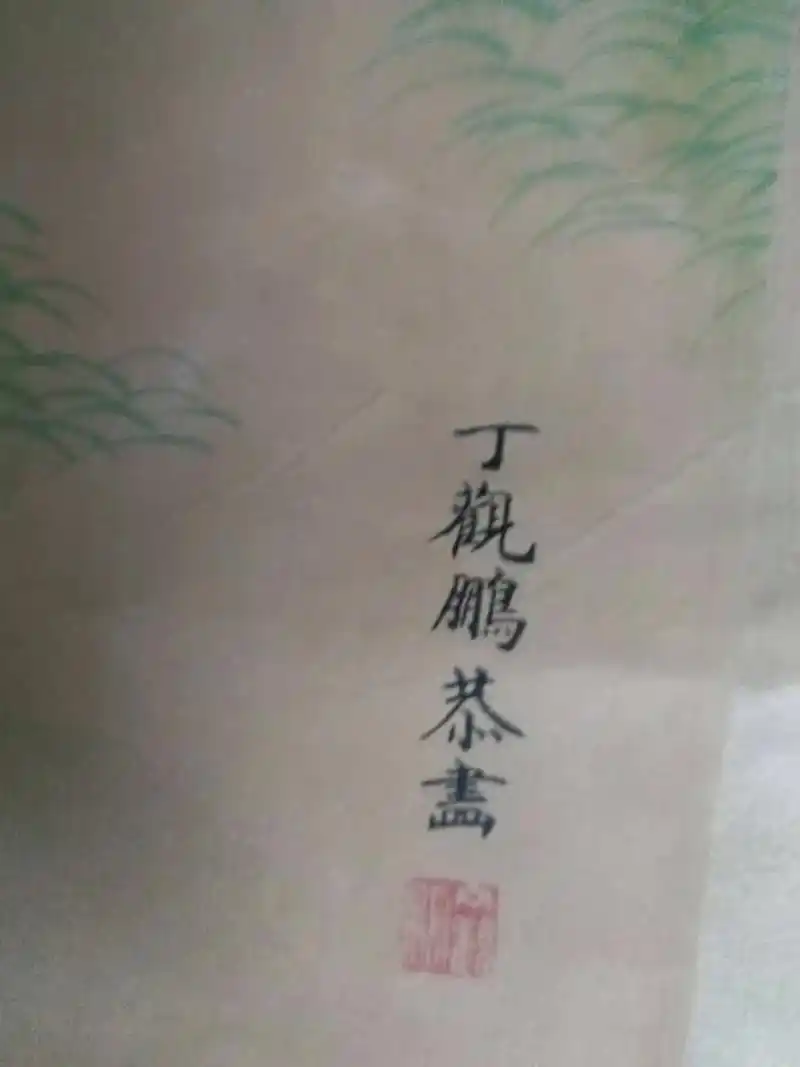 丁觀鵬恭畫